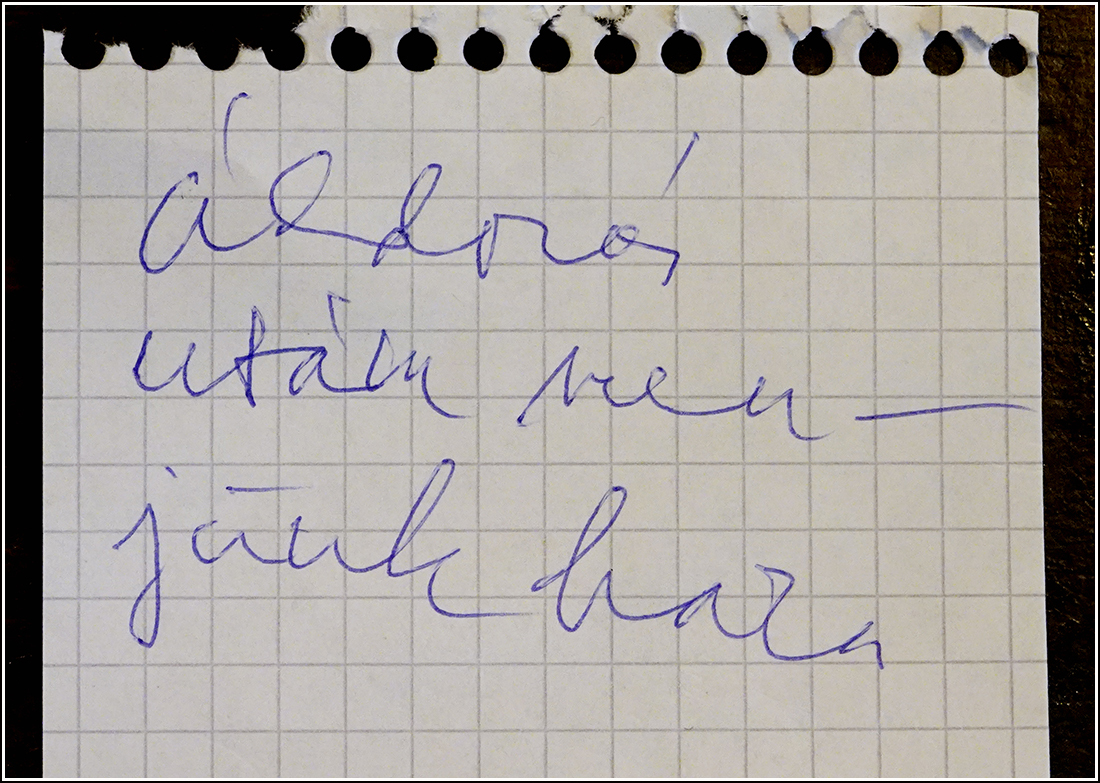 áldozás
után men-
jünk haza